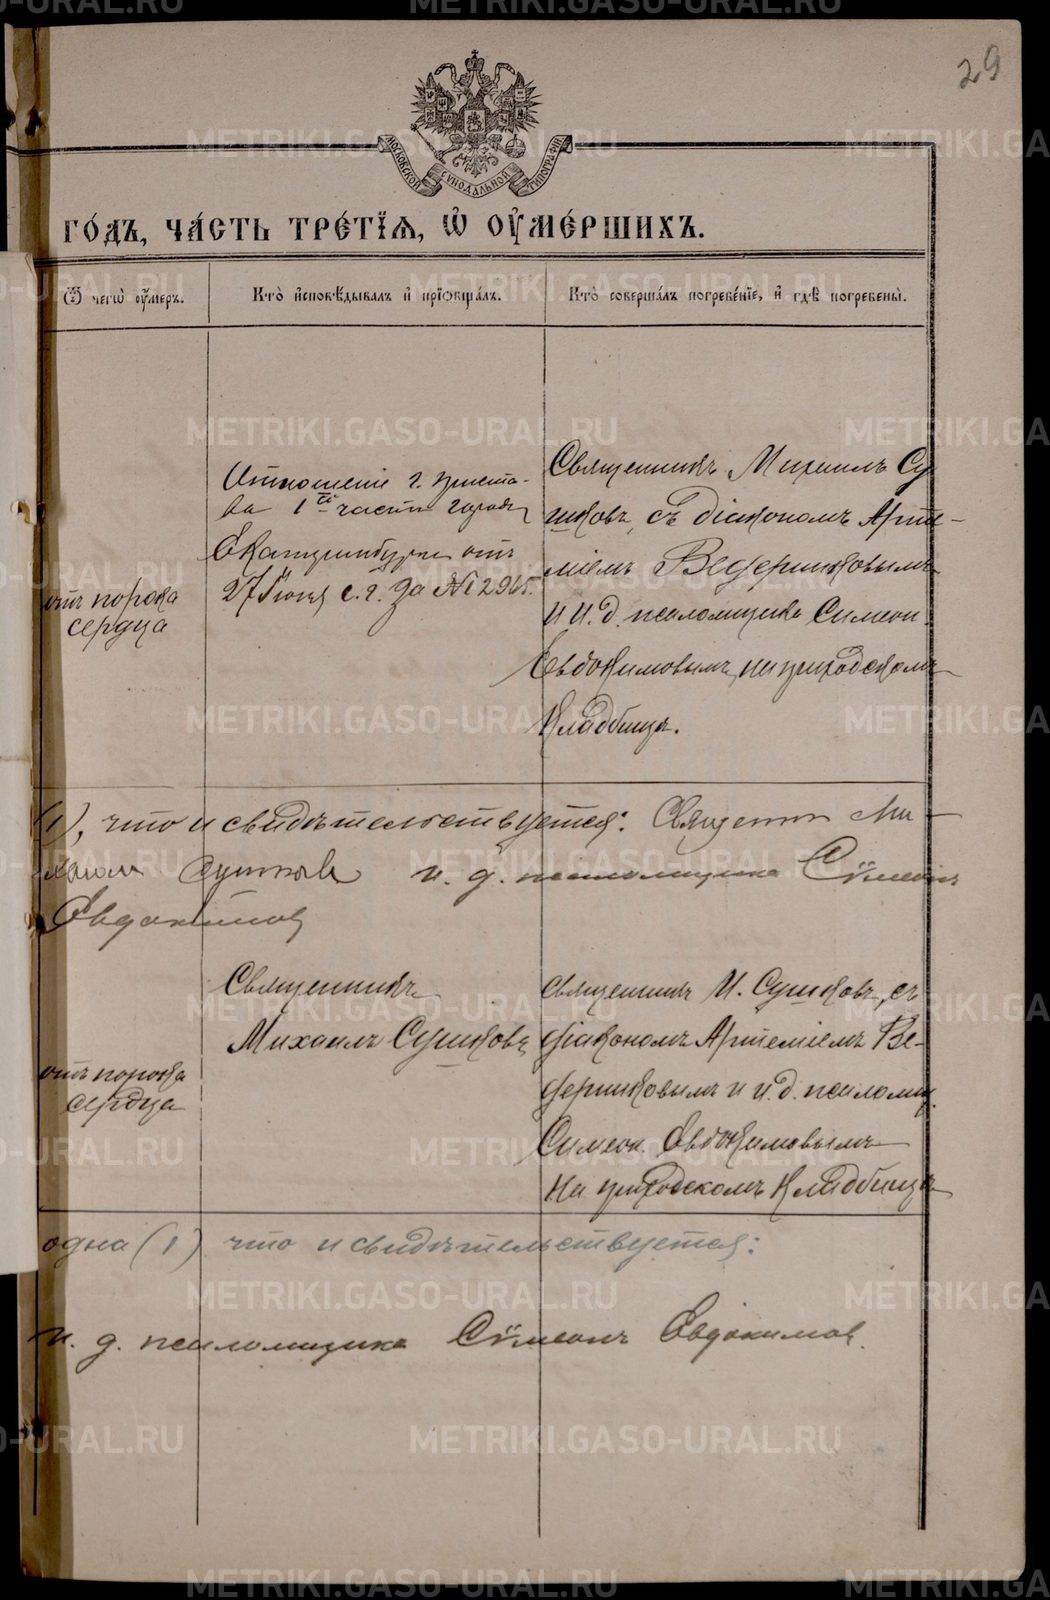 29
МОСКОВСКОЙ СѴНОДАЛЬНОЙ ТИПОГРАФІИ
ГО́ДЪ, ЧА́СТЬ ТРЕ́ТЇѦ, Ѡ҆ ОУ҆МЕ́РШИХЪ.
Ѿ чегѡ̀ оу҆́меръ.
Кто̀ и҆сповѣ́дывалъ и҆ прїѡбща́лъ.
Кто̀ соверша́лъ погребе́нїе, и҆ гдѣ̀ погребены̀.
отъ порока
сердца
Отношеніе г. приста-
ва 1ой части города
Екатеринбурга отъ
27 Іюня с. г. за № 2965.
Священникъ Михаилъ Су
шковъ, съ діакономъ Арте-
міемъ Ведерниковымъ
и и. д. псаломщика Симеон.
Евдокимовымъ, на приходскомъ
кладбище.
(1), что и свидѣтельствуется: Священник Ми-
хаил Сушков и. д. псаломщика Сѵмеонъ
Евдокимов
отъ порока
сердца
Священникъ
Михаилъ Сушковъ
Священникъ М. Сушковъ, съ
діакономъ Артеміемъ Ве-
дерниковымъ и и. д. псаломщ.
Симеон. Евдокимовымъ
на приходскомъ кладбище
одна (1) что и свидѣтельствуется:
и. д. псаломщика Сѵмеонъ Евдокимов.
METRIKI.GASO-URAL.RU